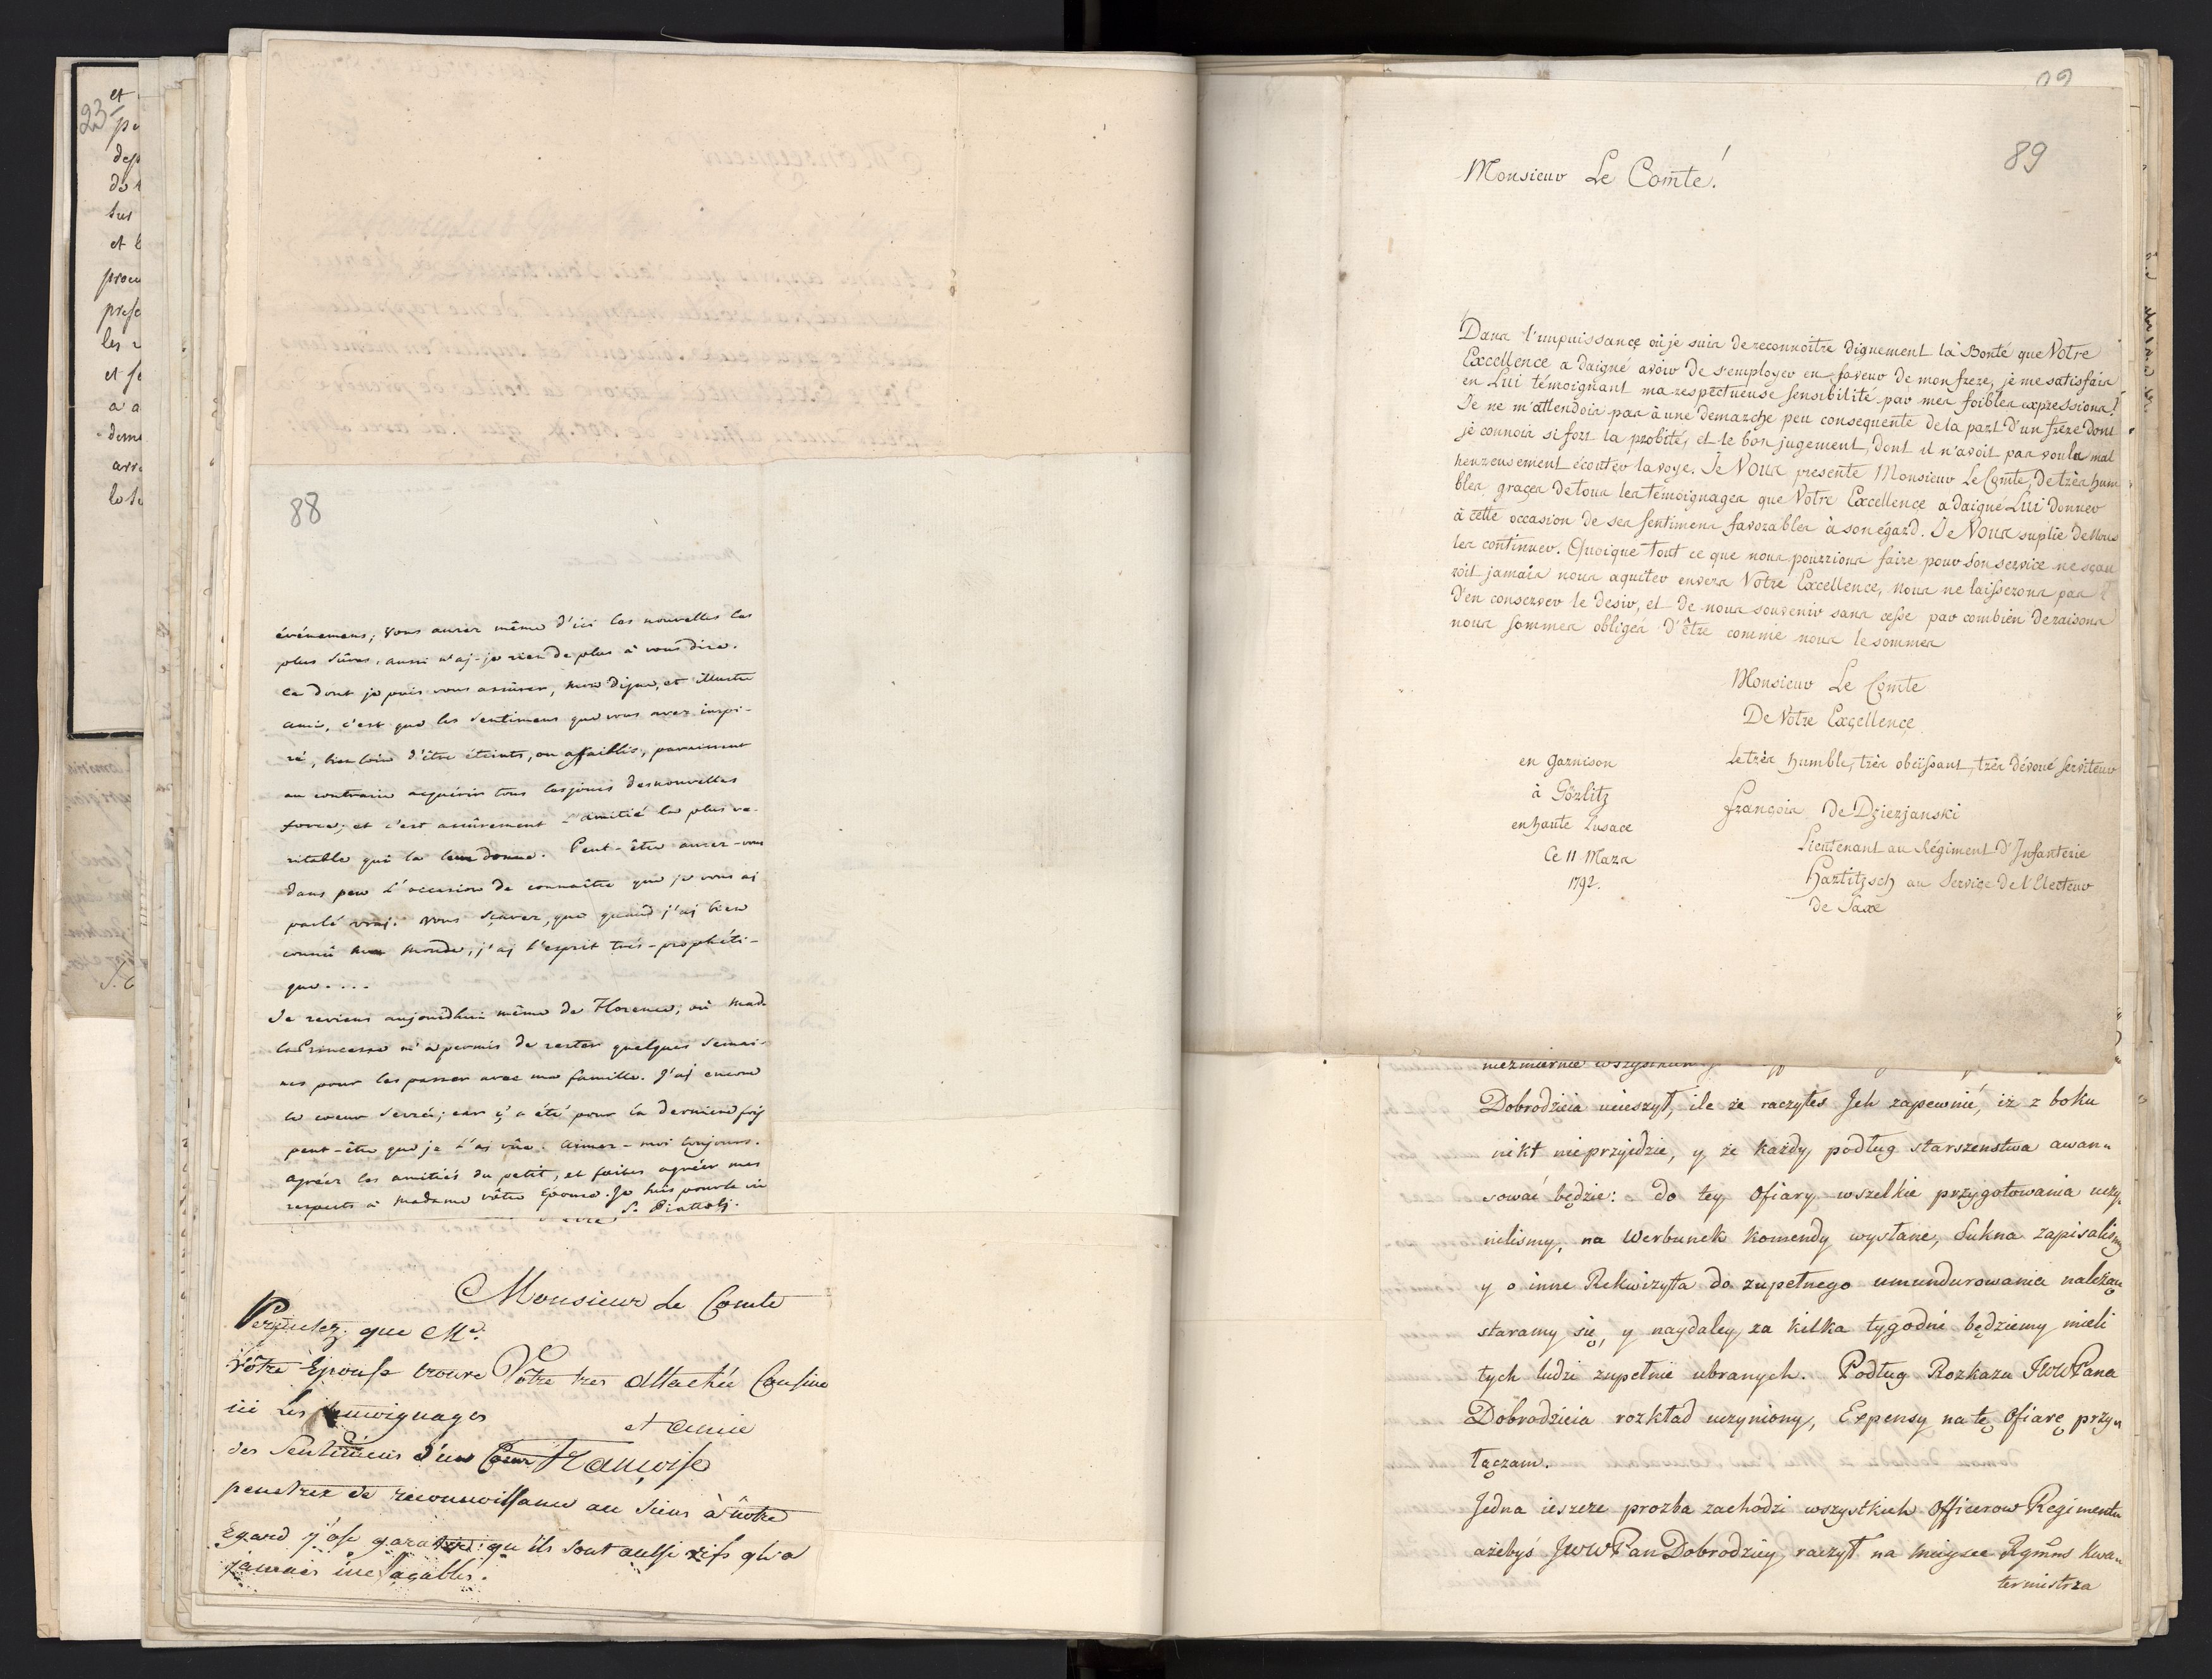 23
et
pe
des
do
sur
et
procu
prese
les
et se
a a
dema
arr
lots
88
événemens; vous aurez même d'ici les nouvelles les
plus sûres. aussi n'aj-je rien de plus à vous dire.
ce dont je puis vous assûrer, mon digne, et illustre
ami, c'est que les sentimens que vous avez inspi-
ré, bien loin d'être éteints, ou affaiblis, paraissent
au contraire acquérir tous les jours des nouvelles
force; et c'est assûrement l'amitié la plus ve-
ritable qui la leur donne. Peut-être aurez-vous
dans peu l'occasion de connaitre que je vous ai
parlé vraj. vous sçavez, que quand j'aj bien
connu mon monde, j'aj l'esprit très-prophéti-
que....
Je reviens aujourdhui même de Florence, où Mad.
la Princesse m'a permis de rester quelques semai-
nes pour les passer avec ma famille. J'aj encore
le coeur serré; car ç'a été pour la derniere fois
peut-être que je l'aj vûe. aimez-moi toujours.
agréez les amitiés du petit, et faites agréer mes
respects à Madame vôtre Epouse. Je suis pour la vie
S. Piattoli.
Monsieur le Comte
Permetez que Me.
Vôtre Epouse trouve
Votre tres Attachée Cousine
ici les temoignages
et amie
des Sentimens d'un Cœur
Françoise
penetrez de reconnoissance au siens à nôtre
Egard j'ose garantir qu'ils sont aussi vifs qu'a
jamais ineffaçables.
89
Monsieur Le Comte!
Dans l'impuissance où je suis de reconnoitre dignement la Bonté que Votre
Excellence a daigné avoir de s'employer en faveur de mon frere, je me satisfais
en Lui témoignant ma respectueuse sensibilité par mes foibles expressions!
Je ne m'attendois pas à une demarche peu consequente de la part d'un frere dont
je connois si fort la probité, et le bon jugement, dont il n'avoit pas voulu mal
heureusement écouter la voye. Je Vous presente Monsieur Le Comte, de très hum
bles graces de tous les témoignages que Votre Excellence a daigné Lui donner
à cette occasion de ses sentimens favorables à son égard. Je Vous suplie de Nous
les continuer. Quoique tout ce que nous pourrions faire pour Son service ne sçau
roit jamais nous aquiter envers Votre Excellence, nous ne laisserons pas
d'en conserver le desir, et de nous souvenir sans cesse par combien de raisons
nous sommes obligés d'être comme nous le sommes
Monsieur Le Comte
De Votre Excellence
en Garnison
à Görlitz
en haute Lusace
Ce 11 Mars
1792.
Le très humble, très obéïssant, très dévoué serviteur
François De Dzierzanski
Lieutenant au Régiment d'Infanterie
Hartitzsch au Service de l'Electeur
de Saxe
niezmiernie wszystkim
Dobrodzieia ucieszył, ile że raczyłeś Jch zapewnić, iż z boku
nikt nieprzyidzie, y że każdy podług starszenstwa awan„
sować będzie: do tey Ofiary wszelkie przygotowania uczy„
nilismy, na Werbunek komendy wysłane, Sukna zapisalismy
y o inne Rekwizyta do zupełnego umundurowania należące
staramy się, y naydaley za kilka tygodni będziemy mieli
tych ludzi zupełnie ubranych. Podług Rozkazu JWWPana
Dobrodzieia rozkład uczyniony, Expensy na tę Ofiarę przy„
łączam.
Jedna ieszcze prozba zachodzi wszystkich Officerow Regimentu
ażebyś JWWPan Dobrodziey raczył na mieysce Rgmns Kwa„
termistrza